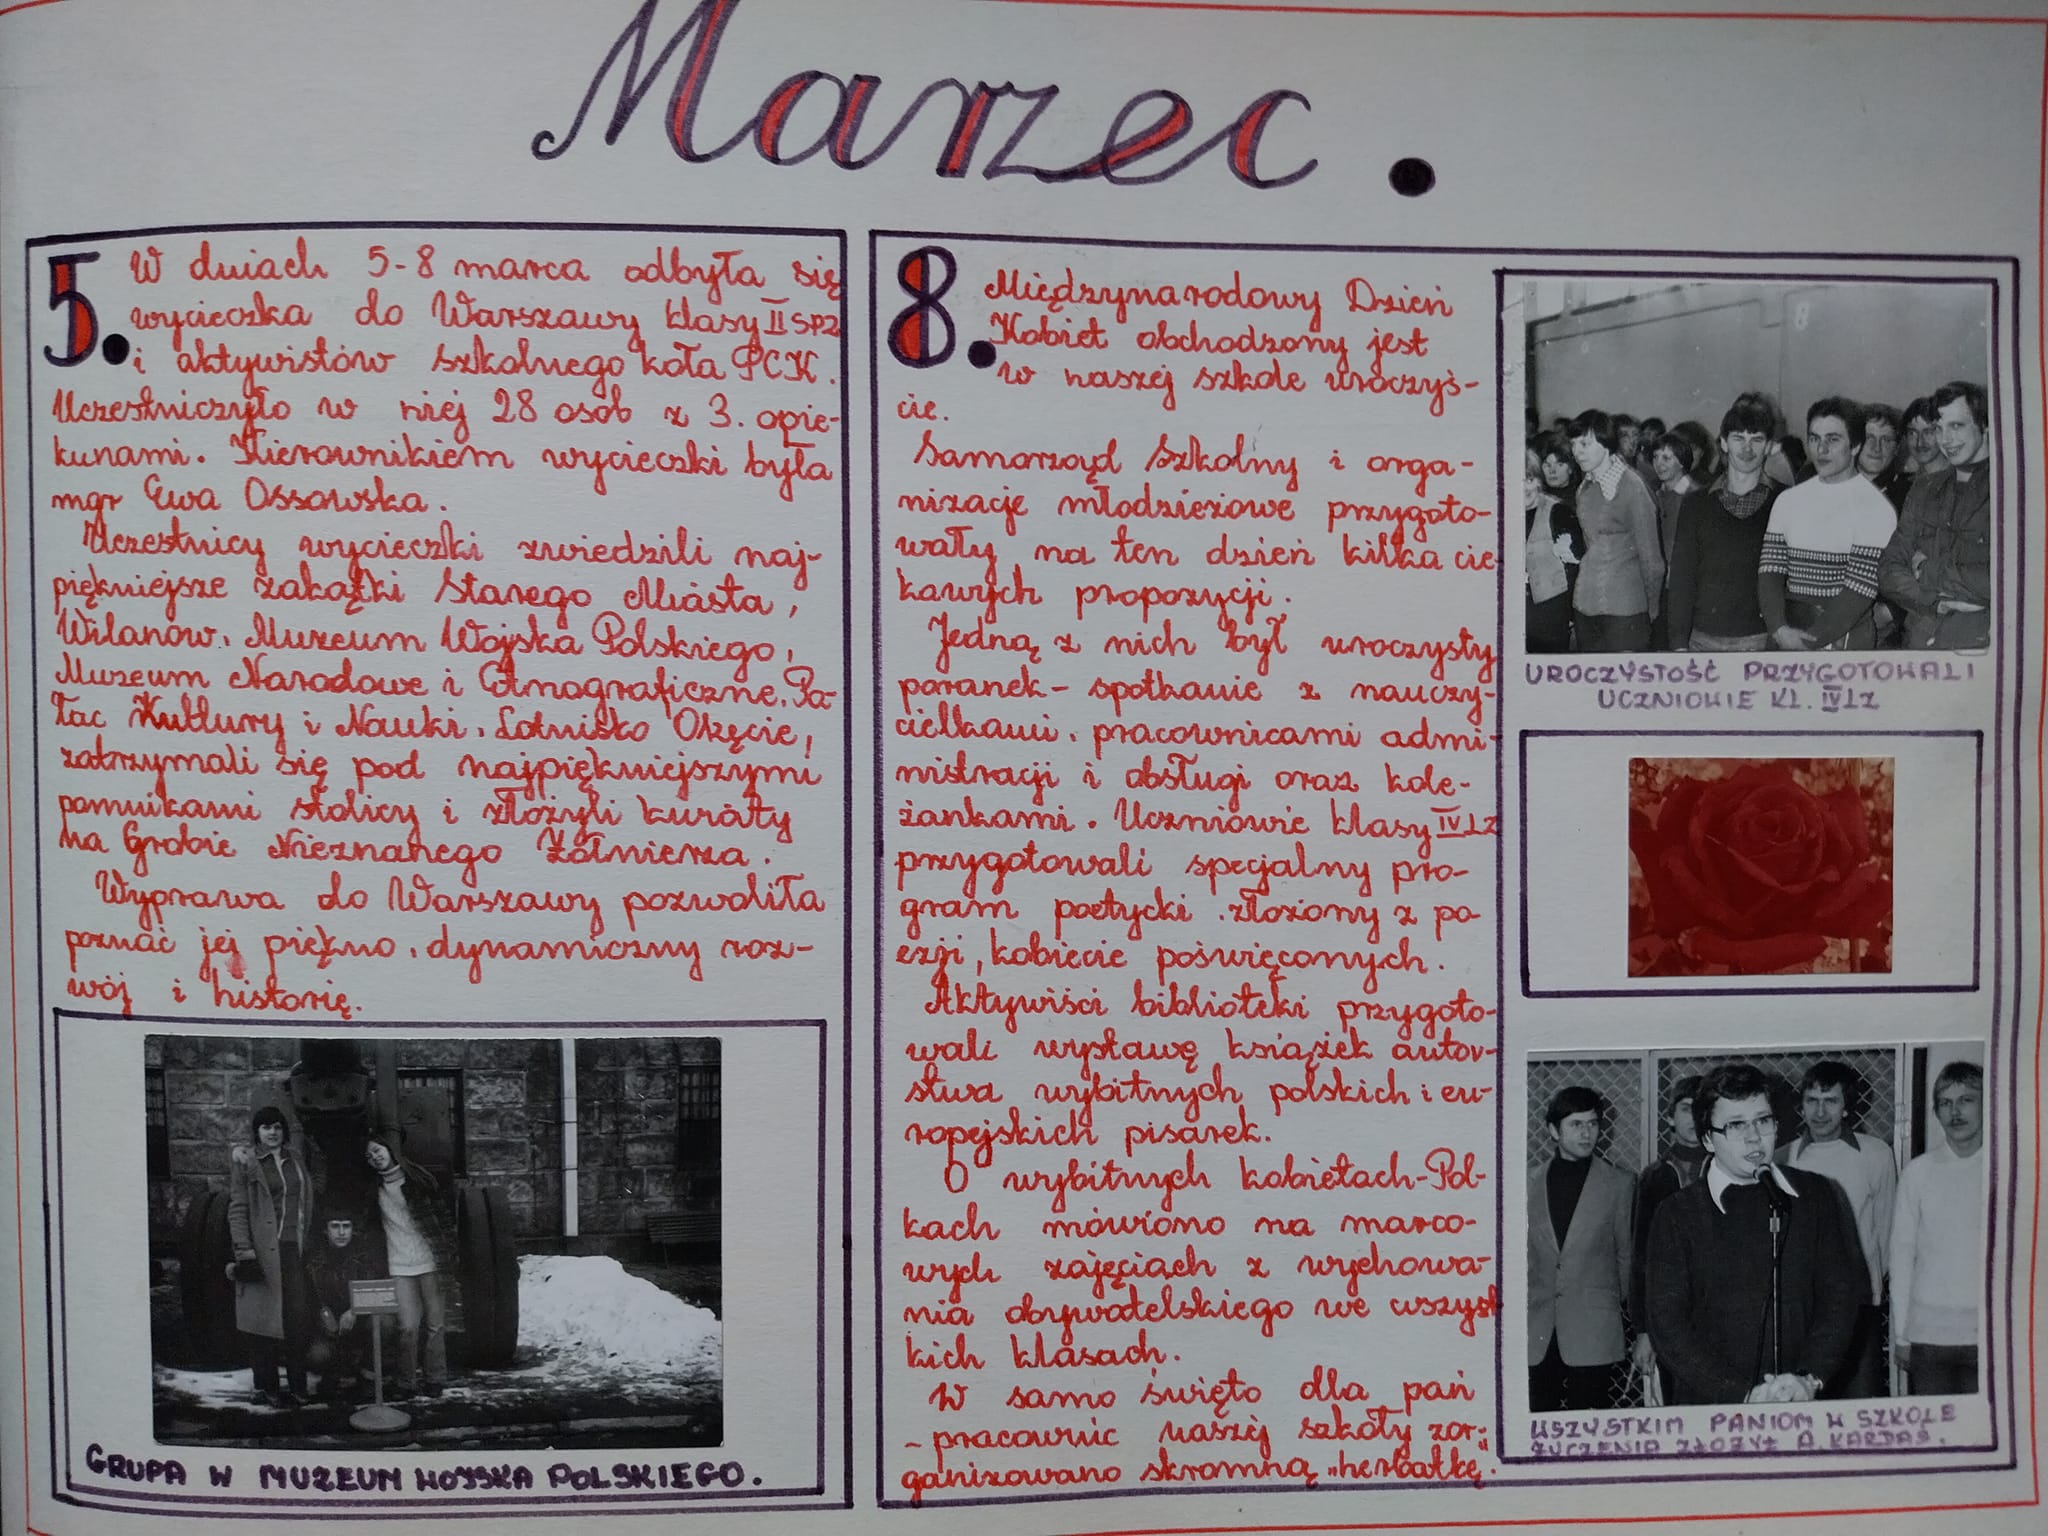 Marzec.
5.
W dniach 5-8 marca odbyła się
wycieczka do Warszawy klasy II SPZ
i aktywistów szkolnego koła PCK.
Uczestniczyło w niej 28 osób z 3. opie-
kunami. Kierownikiem wycieczki była
mgr Ewa Ossowska.
Uczestnicy wycieczki zwiedzili naj-
piękniejsze zakątki Starego Miasta,
Wilanów, Muzeum Wojska Polskiego,
Muzeum Narodowe i Etnograficzne, Pa-
łac Kultury i Nauki, Lotnisko Okęcie,
zatrzymali się pod najpiękniejszymi
pomnikami stolicy i złożyli kwiaty
na Grobie Nieznanego Żołnierza.
Wyprawa do Warszawy pozwoliła
poznać jej piękno, dynamiczny roz-
wój i historię.
GRUPA W MUZEUM WOJSKA POLSKIEGO.
8.
Międzynarodowy Dzień
Kobiet obchodzony jest
w naszej szkole uroczyś-
cie.
Samorząd Szkolny i orga-
nizacje młodzieżowe przygoto-
wały na ten dzień kilka cie
kawych propozycji.
Jedną z nich był uroczysty
poranek - spotkanie z nauczy-
cielkami, pracownicami admi-
nistracji i obsługi oraz kole-
żankami. Uczniowie klasy IV LZ
przygotowali specjalny pro-
gram poetycki, złożony z po
ezji, kobiecie poświęconych.
Aktywiści biblioteki przygoto-
wali wystawę książek autor-
stwa wybitnych polskich i eu-
ropejskich pisarek.
O wybitnych kobietach-Pol-
kach mówiono na marco-
wych zajęciach z wychowa-
nia obywatelskiego we wszyst
kich klasach.
W samo święto dla pań
- pracownic naszej szkoły zor-
ganizowano skromną "herbatkę".
UROCZYSTOŚĆ PRZYGOTOWALI
UCZNIOWIE KL. IV LZ
WSZYSTKIM PANIOM W SZKOLE
ŻYCZENIA ZŁOŻYŁ A. KARDAŚ.